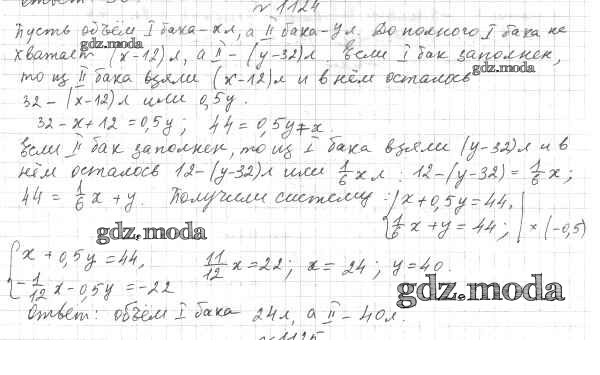 № 1124
Пусть объём I бака - x л, а II бака - y л. До полного I бака не
хватает (x-12) л, а II - (y-32) л. Если I бак заполнен,
то из II бака взяли (x-12) л и в нём осталось
32 - (x-12) л или 0,5y.
32 - x + 12 = 0,5y; 44 = 0,5y + x.
Если II бак заполнен, то из I бака взяли (y-32) л и в
нём осталось 12 - (y-32) л или 1/6 x л : 12 - (y-32) = 1/6 x;
44 = 1/6 x + y. Получили систему: { x + 0,5y = 44,
1/6 x + y = 44; | × (-0,5)
gdz.moda
gdz.moda
gdz.moda
{ x + 0,5y = 44,
- 1/12 x - 0,5y = -22
11/12 x = 22; x = 24; y = 40.
gdz.moda
Ответ: объём I бака 24 л, а II - 40 л.
№ 1125